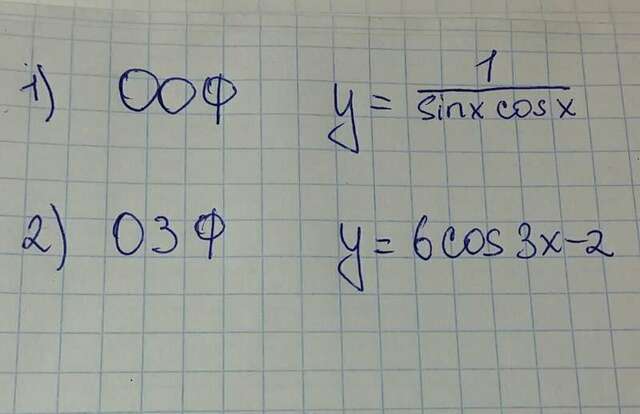 1) ООФ y = 1/(sinx cosx)
2) ОЗФ y = 6cos3x-2